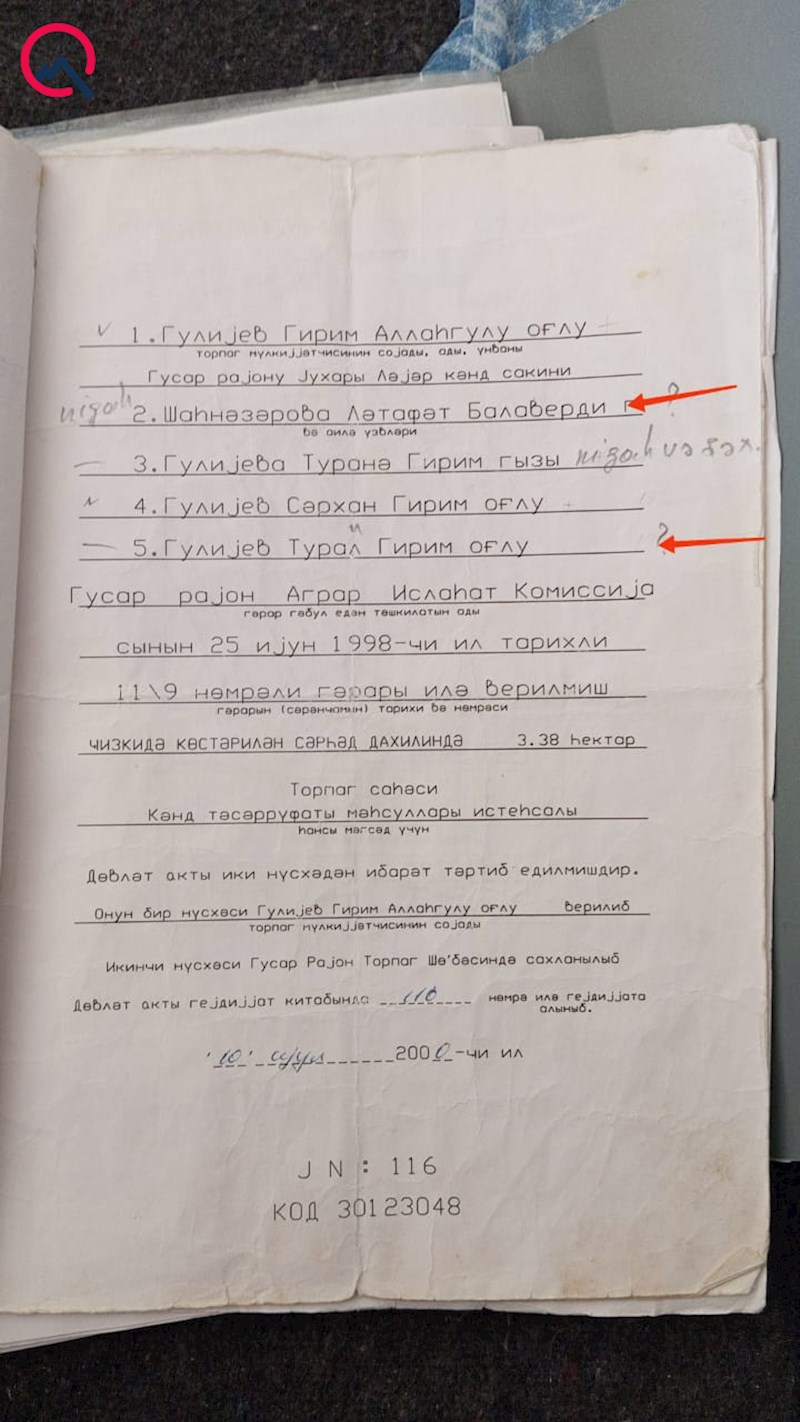 1.Гулијев Гирим Аллаһгулу оғлу
торпаг мүлкијјәтчисинин сојады, ады, үнваны
Гусар рајону Јухары Ләјәр кәнд сакини
nigah 2.Шаһнәзәрова Ләтафәт Балаверди г ?
вә аилә үзвләри
3.Гулијева Туранә Гирим гызы nigah və şəx.
4.Гулијев Сәрхан Гирим оғлу
5.Гулијев Турал Гирим оғлу ?
Гусар рајон Аграр Ислаһат Комиссија
гәрар гәбул едән тәшкилатын ады
сынын 25 ијун 1998-чи ил тарихли
11\9 нөмрәли гәрары илә верилмиш
гәрарын (сәрәнчамын) тарихи вә нөмрәси
чизкидә көстәрилән сәрһәд дахилиндә 3.38 һектар
Торпаг саһәси
Кәнд тәсәррүфаты мәһсуллары истеһсалы
һансы мәгсәд үчүн
Дөвләт акты ики нүсхәдән ибарәт тәртиб едилмишдир.
Онун бир нүсхәси Гулијев Гирим Аллаһгулу оғлу верилиб
торпаг мүлкијјәтчисинин сојады
Икинчи нүсхәси Гусар Рајон Торпаг Шө'бәсиндә сахланылыб
Дөвләт акты гејдијјат китабында 116 нөмрә илә гејдијјата
алыныб.
'10' ијул 2000-чи ил
J N : 116
КОД 30123048